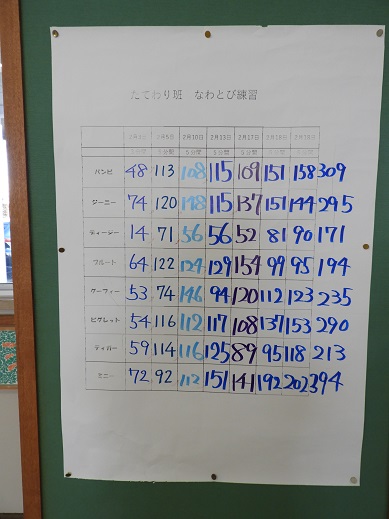 たてわり班 なわとび練習
2月10日 2月13日 2月17日 2月18日
5分間 5分間 5分間 5分間 5分間
バンビ 48 113 108 115 109 151 158 309
ダーニー 74 120 148 115 137 151 144 295
ティーダー 14 71 56 56 52 81 90 171
プルート 64 122 124 129 154 99 95 194
グーフィー 53 74 146 94 120 112 123 235
ピグレット 54 116 112 117 108 137 153 290
ティガー 59 114 116 125 89 95 118 213
ミニー 72 92 112 151 141 192 202 394